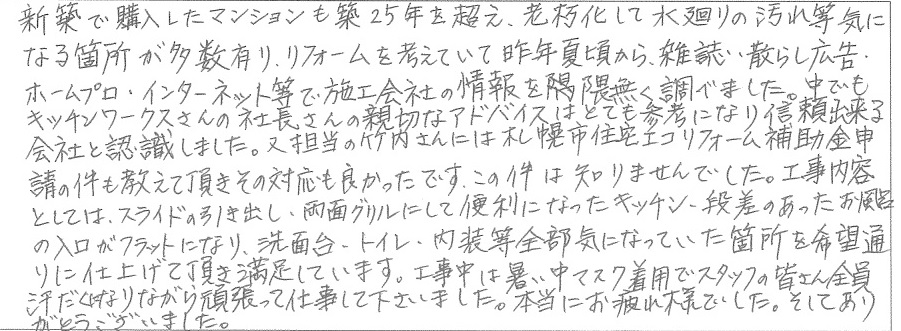 新築で購入したマンションも築25年を超え、老朽化して水廻りの汚れ等気に
なる箇所が多数有り、リフォームを考えていて昨年夏頃から、雑誌・散らし広告・
ホームプロ・インターネット等で施工会社の情報を隅隅無く調べました。中でも
キッチンワークスさんの社長さんの親切なアドバイスはとても参考になり信頼出来る
会社と認識しました。又担当の竹内さんには札幌市住宅エコリフォーム補助金申
請の件も教えて頂きその対応も良かったです。この件は知りませんでした。工事内容
としては、スライドの引き出し・両面グリルにして便利になったキッチン・段差のあったお風呂
の入口がフラットになり、洗面台・トイレ・内装等全部気になっていた箇所を希望通
りに仕上げて頂き満足しています。工事中は暑い中マスク着用でスタッフの皆さん全員
汗だくになりながら頑張って仕事して下さいました。本当にお疲れ様でした。そしてあり
がとうございました。